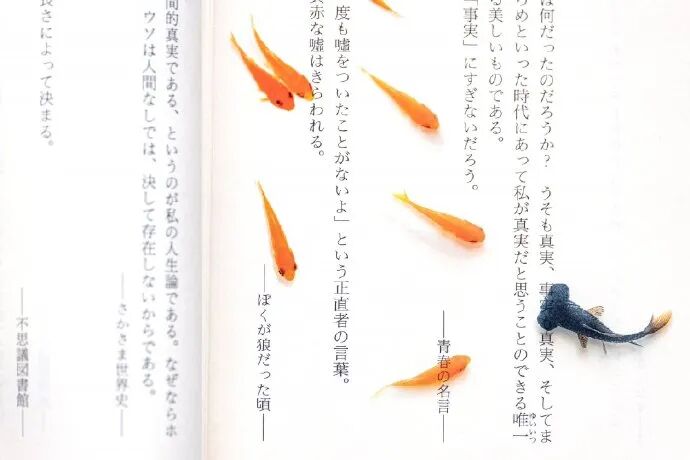 は何だったのだろうか? うそも真実、事実も真実、そしてま
らめといった時代にあって私が真実だと思うことのできる唯一
ゆいいつ
る美しいものである。
「事実」にすぎないだろう。
――青春の名言――
度も嘘をついたことがないよ」という正直者の言葉。
真赤な嘘はきらわれる。
――ぼくが狼だった頃――
間的真実である、というのが私の人生論である。なぜならホ
ウソは人間なしでは、決して存在しないからである。
――さかさま世界史――
長さによって決まる。
――不思議図書館――